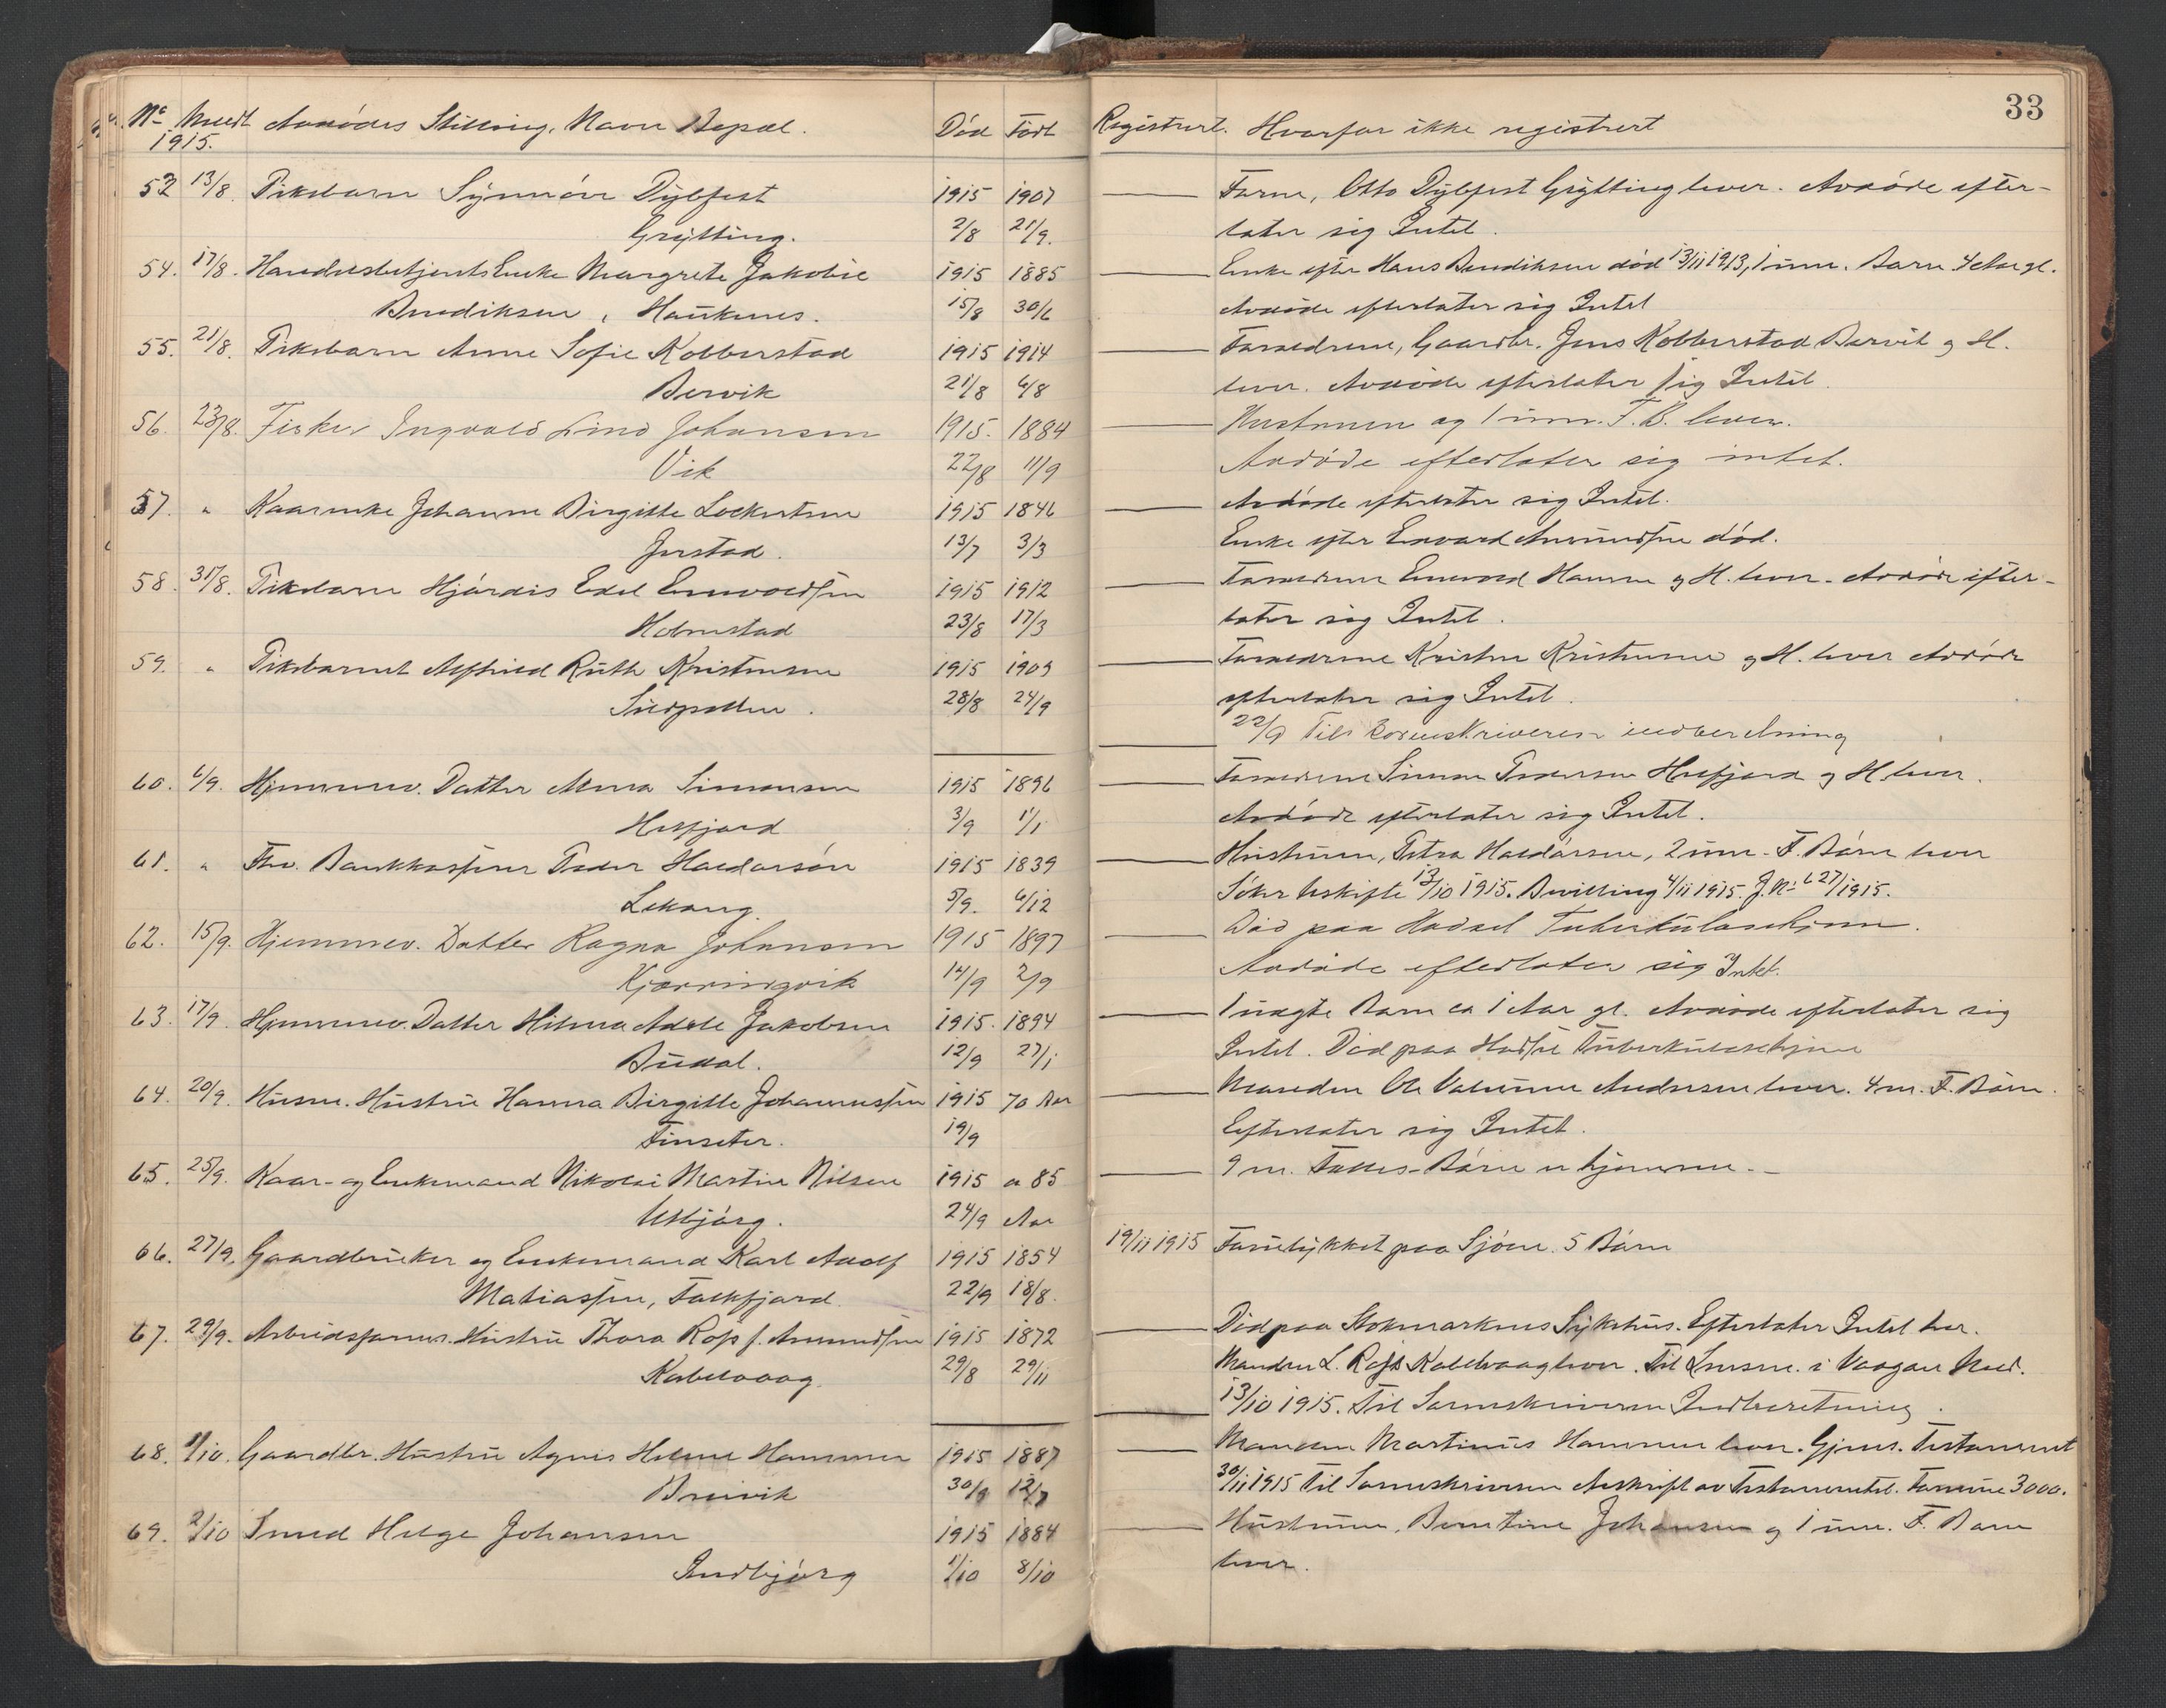 33
No Meldt Avdødes Stilling, Navn Bopæl. Død Født Registrert. Hvorfor ikke registrert
1915.
53 13/8. Pikebarn Synnöve Dybfest 1915 1907 Farne, Otto Dybfest Grytting lever. Avdøde efter-
Grytting. 2/8 21/9. later sig Intet.
54. 17/8. Handelsbetjents Enke Margrete Jakobie 1915 1885 Enke efter Hans Bendiksen død 13/11 1913, 1 um. Barn 4 Aar gl.
Bendiksen, Haukenes. 15/8 30/6 Avdøde efterlater sig Intet
55. 21/8. Pikebarn Anne Sofie Kobberstad 1915 1914 Forældrene, Gaardbr. Jens Kobberstad Bervik og H.
Bervik 21/8 6/8 lever. Avdøde efterlater sig Intet.
56. 23/8. Fisker Ingvald Lind Johansen 1915. 1884 Hustruen og 1 um. F. B. lever.
Vik 22/8 11/9 Avdøde efterlater sig intet.
57. " Kaarenke Johanne Birgitte Lockertsen 1915 1846 Avdøde efterlater sig Intet.
Jerstad. 13/7 3/3 Enke efter Edvard Amundsen død.
58. 31/8. Pikebarn Hjördis Edel Enevoldsen 1915 1912 Forældrene Enevold Hansen og H. lever. Avdøde efter-
Holmstad 23/8 17/3 later sig Intet.
59. " Pikebarnet Alfhild Ruth Kristensen 1915 1909 Forældrene Kristen Kristensen og H. lever Avdøde
Sildpollen. 28/8 24/9 efterlater sig Intet.
22/9 Til Sorenskriveren indberetning
60. 6/9. Hjemmev. Datter Anna Simonsen 1915 1896 Forældrene Simon Pedersen Helfjord og H. lever.
Helfjord 3/9 1/1 Avdøde efterlater sig Intet.
61. " Fhv. Bankkasserer Peder Haldorsön 1915 1839 Hustruen, Petra Haldorsen, 2 um. F. Börn lever
Lekang. 5/9. 6/12 Söker Uskifte 13/10 1915. Bevilling 4/11 1915. J. No 627/1915.
62. 15/9. Hjemmev. Datter Ragna Johansen 1915 1897 Död paa Hadsel Tuberkulosehjem.
Kjærringvik 14/9 2/9 Avdøde efterlater sig Intet.
63. 17/9. Hjemmev. Datter Hilma Adele Jakobsen 1915. 1894 1 uægte Barn ca 1 Aar gl. Avdøde efterlater sig
Budal. 12/9 27/1 Intet. Död paa Hadsel Tuberkulosehjem
64. 20/9. Husm. Hustru Hanna Birgitte Johannessen 1915 70 Aar Manden Ole Andersen lever. 4 m. F. Börn.
Finseter. 19/9 Efterlater sig Intet.
65. 25/9. Kaar- og Enkemand Nikolai Martin Nilsen 1915 ca 85 9 m. Fælles-Börn er hjemme.
Usbjörg. 24/9 Aar
66. 27/9. Gaardbruker og Enkemand Karl Adolf 1915 1854 19/11 1915 Forulykket paa Sjöen. 5 Börn
Mathiassen, Falkfjord. 22/9 18/8.
67. 29/9. Arbeidsform. Hustru Thora Ross f. Amundsen 1915 1872 Död paa Stokmarknes Sykehus. Efterlater Intet her.
Kabelvaag 29/8 29/11 Manden L. Ross Kabelvaag lever. Til Lensm. i Vaagan Med.
13/10 1915. Til Sorenskriveren Indberetning.
68. 1/10. Gaardbr. Hustru Agnes Helene Hammer 1915 1887 Manden Martinus Hammer lever. Gjens. Testament
Breivik 30/9 12/7 30/11 1915 Til Sorenskriveren Avskrift av Testamentet. Formue 3000.
69. 2/10 Smed Helge Johansen 1915 1884 Hustruen, Berntine Johansen og 1 um. F. Barn
Indbjörg 1/10 8/10 lever.